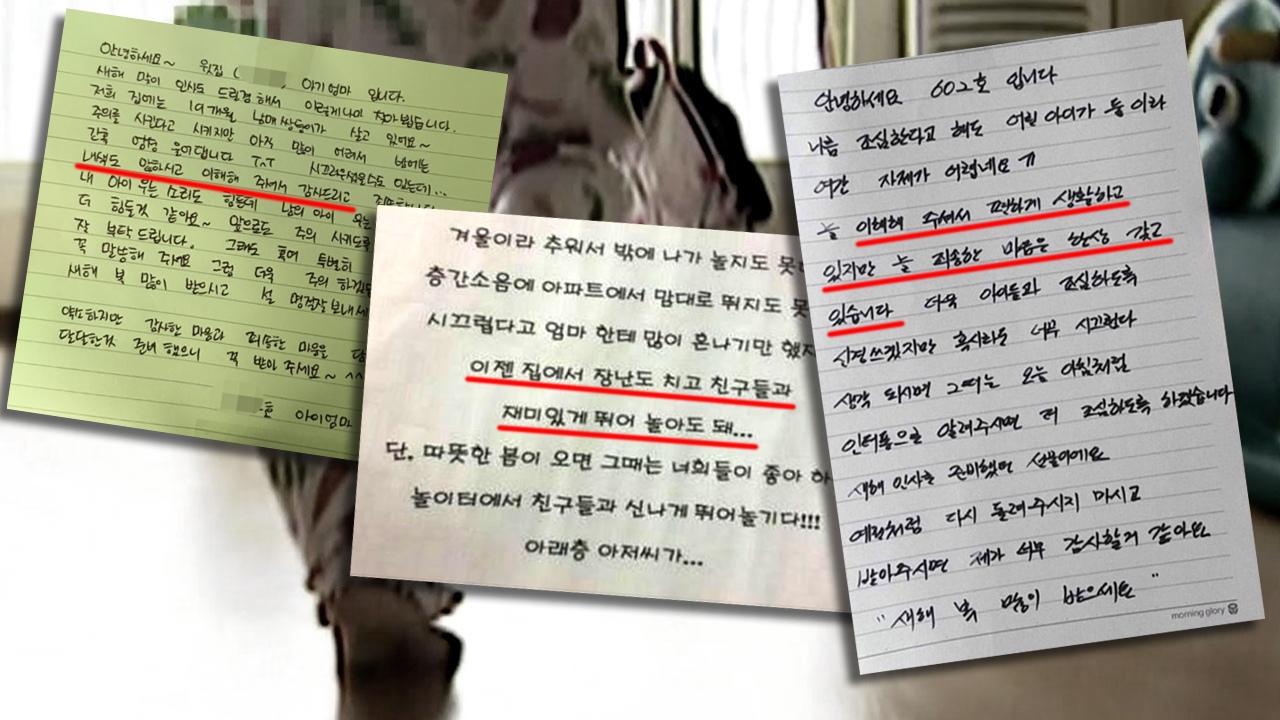 안녕하세요~ 윗집 ( , 아기엄마 입니다.
새해 많이 인사도 드릴겸 해서 이렇게나마 찾아뵙습니다.
저희 집에는 19개월 남매 쌍둥이가 살고 있어요~
주의를 시킨다고 시키지만 아직 많이 어려서 밤에는
간혹 엄청 울어댑니다 T.T 시끄러우셨을수도 있는데...
내색도 안하시고 이해해 주셔서 감사드리고
내 아이 우는 소리도 힘든데 남의 아이 우는
더 힘들것 같아요~ 앞으로도 주의 시키도록
잘 부탁 드립니다. 그래도 혹여 특별히
꼭 말씀해 주세요 그럼 더욱 주의 하겠
새해 복 많이 받으시고 설 명절 잘 보내세
약소하지만 감사한 마음과 죄송한 마음을 담
달달한것 준비 했으니 꼭 받아 주세요~ ^^
호 아이엄마
겨울이라 추워서 밖에 나가 놀지도 못
층간소음에 아파트에서 맘대로 뛰지도 못
시끄럽다고 엄마 한테 많이 혼나기만 했지
이젠 집에서 장난도 치고 친구들과
재미있게 뛰어 놀아도 돼...
단, 따뜻한 봄이 오면 그때는 너희들이 좋아 하
놀이터에서 친구들과 신나게 뛰어놀기다!!!
아래층 아저씨가...
안녕하세요 602호 입니다
나름 조심한다고 해도 어린 아이가 둘 이라
여간 자제가 어렵네요 ㅠ
늘 이해해 주셔서 편하게 생활하고
있지만 늘 죄송한 마음은 항상 갖고
있습니다 더욱 아이들과 조심하도록
신경쓰겠지만 혹시라도 너무 시끄럽다
생각 되시면 그때는 오늘 아침처럼
인터폰으로 알려주시면 더 조심하도록 하겠습니다
새해 인사로 준비했던 선물이에요
예전처럼 다시 돌려주시지 마시고
받아주시면 제가 너무 감사할거 같아요
"새해 복 많이 받으세요"
morning glory